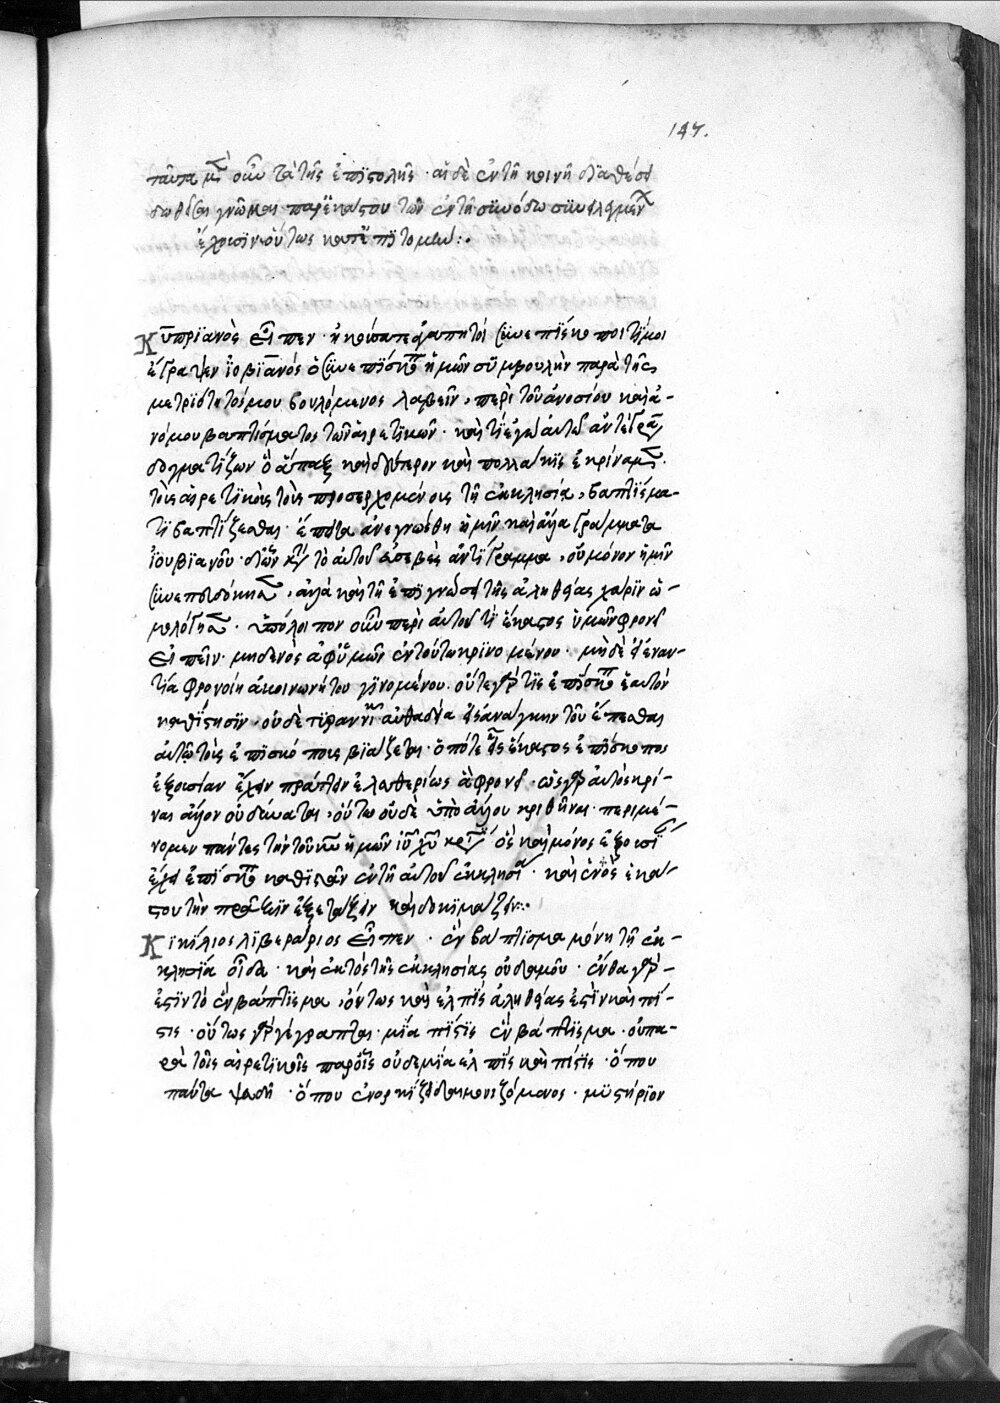 147.
ταῦτα μὲν οὖν τὰ τῆς ἐπιστολῆς · αἱ δὲ ἐν τῇ κοινῇ διαθέσει
δοθεῖσαι γνῶμαι παρ' ἑκάστου τῶν ἐν τῇ συνόδω συνειλεγμένων
ἔχουσιν οὕτως κατ' ἐπιτομήν :·
Κυπριανὸς εἶπεν · ἠκούσατε ἀγαπητοί συνεπίσκοποι τί μοι
ἔγραψεν ἰοβιανός ὁ συνεπίσκοπος ἡμῶν συμβουλὴν παρὰ τῆς
μετριότητός μου βουλόμενος λαβεῖν, περὶ τοῦ ἀνοσίου καὶ ἀ-
νόμου βαπτίσματος τῶν αἱρετικῶν · καὶ τί ἐγὼ αὐτῶ ἀντέγραψα
δογματίζων ὃ ἅπαξ καὶ δεύτερον καὶ πολλάκις ἐκρίναμεν ·
τοὺς αἱρετικοὺς τοὺς προσερχομένους τῇ ἐκκλησία, βαπτίσμα-
τι βαπτίζεσθαι · ἔπειτα ἀνεγνώσθη ἡμῖν καὶ ἄλλα γράμματα
ἰουβιανοῦ · δι' ὧν κατὰ τὸ αὐτοῦ εὐσεβὲς ἀντίγραμμα, οὐ μόνον ἡμῖν
συνεπευδόκησεν, ἀλλὰ καὶ τῇ ἐπιγνώσει τῆς ἀληθείας χάριν ὡ-
μολόγησεν · ὑπόλοιπον οὖν περὶ αὐτοῦ τί ἕκαστος ὑμῶν φρονεῖ
εἰπεῖν · μηδενὸς ἀφ' ὑμῶν ἐν τούτω κρινομένου · μὴ δὲ εἰ ἐναν-
τία φρονοίη ἀκοινωνήτου γινομένου · οὔτε γάρ τις ἐπίσκοπον ἑαυτόν
καθίστησιν, οὐδὲ τυραννικῆ αὐθαδεία εἰς ἀνάγκην τοῦ ἕπεσθαι
αὐτῶ τοὺς ἐπισκόπους βιάζεται · ὁπότε εἷς ἕκαστος ἐπίσκοπος
ἐξουσίαν ἔχει πράττειν ἐλευθερίως ἃ φρονεῖ · ὡς γὰρ αὐτὸς κρί-
ναι ἄλλον οὐ δύναται, οὕτω οὐδὲ ὑπὸ ἄλλου κριθῆναι · περιμέ-
νομεν πάντες τὴν τοῦ κυ ἡμῶν ιυ χυ κρίσιν ὃς καὶ μόνος ἐξουσίαν
ἔχει ἐπίσκοπον καθιστᾶν ἐν τῇ αὐτοῦ ἐκκλησία · καὶ ἑνὸς ἑκά-
στου τὴν πρᾶξιν ἐξετάζειν καὶ δοκιμάζειν :·
Κικίλιος λιβεράριος εἶπεν · ἓν βάπτισμα μόνη τῇ ἐκ-
κλησία οἶδα · καὶ ἐκτὸς τῆς ἐκκλησίας οὐδαμοῦ · ἔνθα γάρ
ἐστιν τὸ ἓν βάπτισμα, ὄντως καὶ ἐλπὶς ἀληθείας ἐστὶν καὶ πί-
στις · οὕτως γὰρ γέγραπται · μία πίστις ἓν βάπτισμα · οὐ πα-
ρὰ τοῖς αἱρετικοῖς παρ' οἷς οὐδεμία ἐλπὶς καὶ πίστις · ὅπου
πάντα ψευδῆ · ὅπου ἐνορκίζει δαιμονιζόμενος · μυστήριον